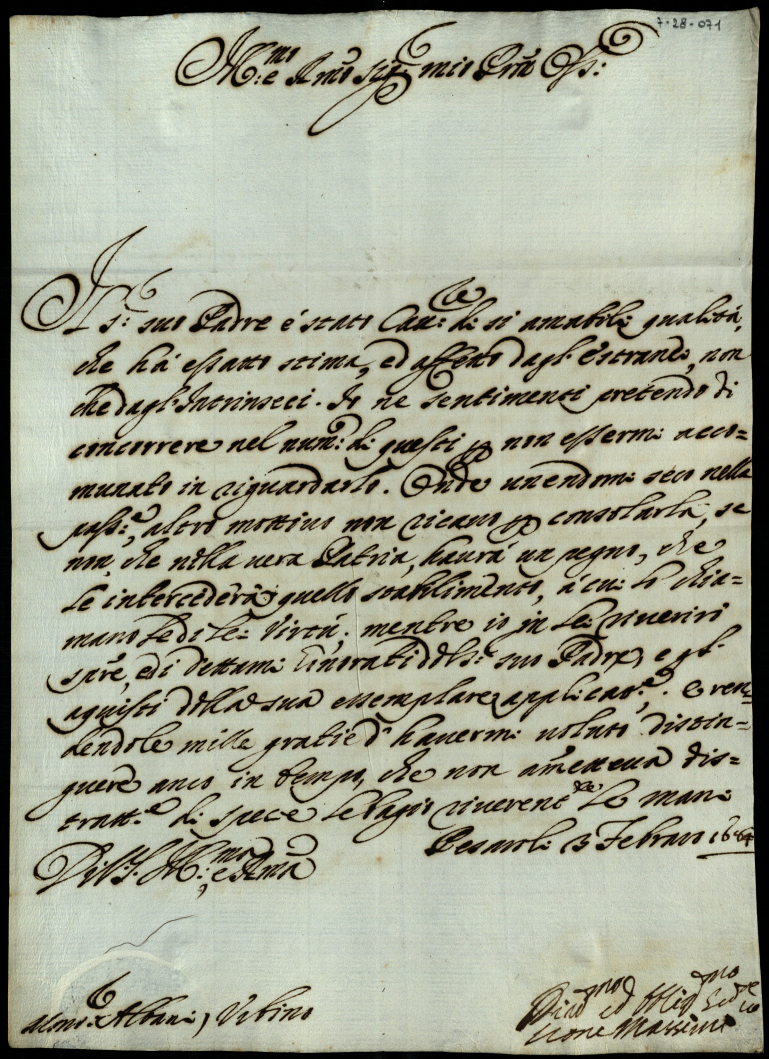 7-28-071
Ill.mo e R.mo Sig.r mio P.ron
Il S.r suo Padre é stato Cau.re di si amabili qualità,
che há essatto stima, ed affetto dagl'estranei, non
che dagl'Intrinseci. Io ne sentimenti pretendo di
concorrere nel num.o di questi p non essermi acco=
munato in riguardarlo. Onde unendomi seco nella
pass.e, altro mottivo non ricavo p consolarla, se
non, che nella vera Patria, haurá un pegno, che
Le intercederà quello stabilimento, á cui lo chia=
mano le di lei Virtú; mentre io in Lei riverirò
sp.re, e di dettami honorati del S.r suo Padre, e gl'
aquisti della sua essemplare applicat.e. E ren=
dendole mille gratie d'havermi voluto distin=
guere anco in tempo, che non ametteva dis=
tratt.e di spece le bagio riverent.te le mani
Pesaro li 13 Febraro 1684
Di V.S. Ill.ma e R.ma
Mons.r Albani, Urbino
Div.mo ed Oblig.mo Ser.re
Massimi